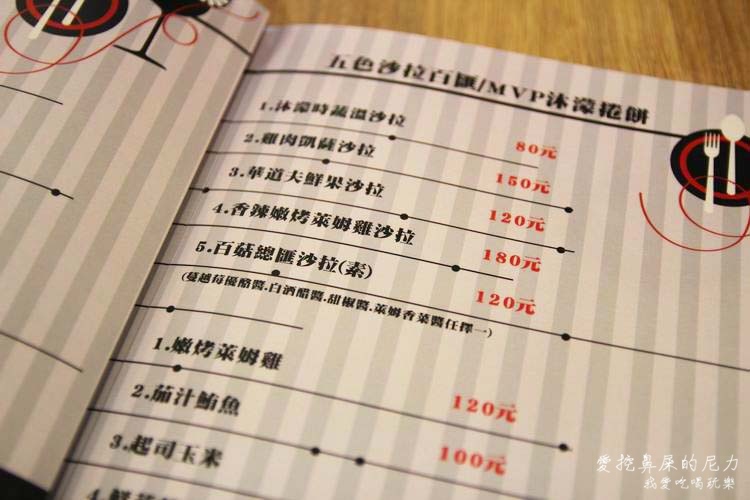 五色沙拉百匯/MVP沐濛捲餅
1.沐濛時蔬溫沙拉 80元
2.雞肉凱薩沙拉 150元
3.華道夫鮮果沙拉 120元
4.香辣嫩烤萊姆雞沙拉 180元
5.百菇總匯沙拉(素) 120元
(蔓越莓優酪醬.白酒醋醬.甜椒醬.萊姆香菜醬任擇一)
1.嫩烤萊姆雞 120元
2.茄汁鮪魚 100元
3.起司玉米
愛挖鼻屎的尼力
我愛吃喝玩樂